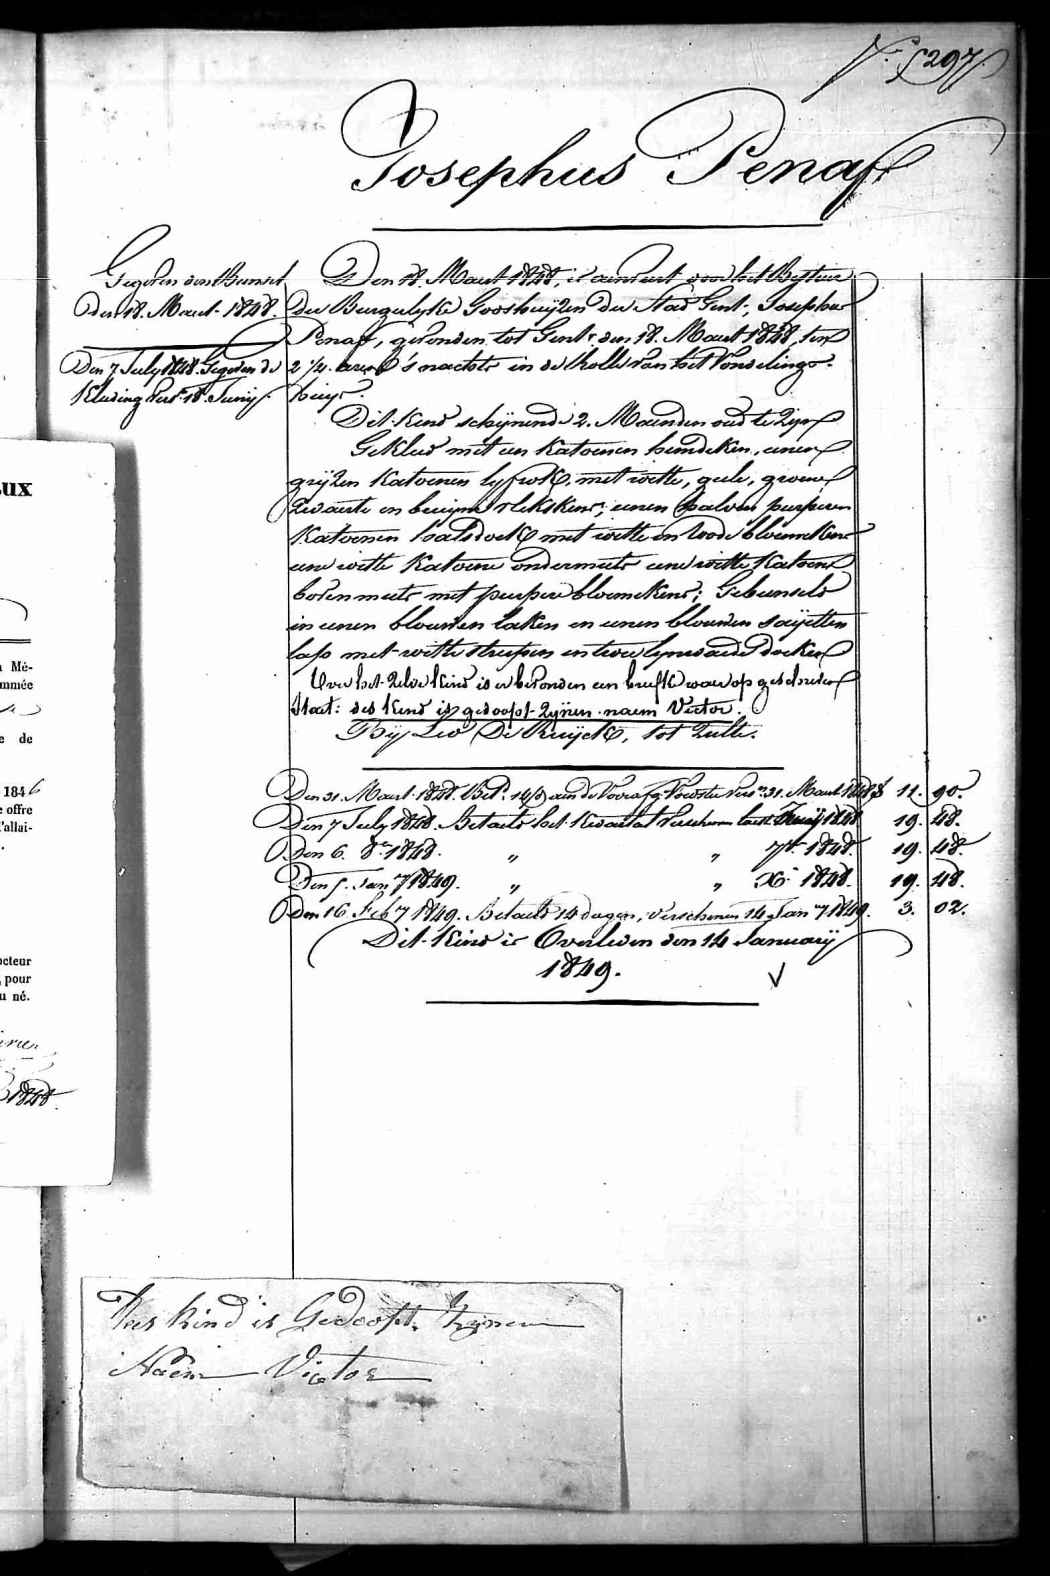 Josephus Penaf
Gegeven den Bunsel
den 18. Maart 1848.
Den 7 July 1848. Gegeven de
Kleeding Vers. 18 Junij.
Den 18. Maart 1848, is aenveert door het Bestuur
der Burgerlyke Godshuijzen der Stad Gent, Josephus
Penaf, gevonden tot Gent den 18. Maart 1848, ten
2 1/4 uren 's nachts in de Rolle van het Vondelings-
huijs.
Dit Kind schijnende 2. Maenden oud te zijn
Gekleed met een Katoenen hemdeken, eenen
grijzen Katoenen lyfrok met witte, geele, groene
zwarte en bruijne vlekskens; eenen halven purperen
Katoenen halsdoek met witte en roode bloemekens
eene witte Katoene ondermuts eene witte Katoene
bovenmuts met purpere bloemekens; Gebunseld
in eenen blauwen laken en eenen blauwen saijetten
lap met witte streepen en twee lynwaede doeken
Over het zelve Kind is er bevonden een briefke waer op geschreven
staet: des Kind is gedoopt zijnen naem Victor.
Bij Leo De Ruijck, tot Zulte.
Den 31. Maart 1848. Bet. 14/ aen de Voorafg. Voedster Vers. 31. Maart 1848 f 11. 90.
Den 7 July 1848. Betaeld het Kwartael verschenen Junij 1848 19. 48.
Den 6. 8re 1848. " " 7br 1848. 19. 48.
Den 5. Jany 1849. " " Xr 1848. 19. 48.
Den 16 Feby 1849. Betaeld 14 dagen, verschenen 14 Jany 1849. 3. 02.
Dit Kind is Overleden den 14 January
1849.
V
ux
Mé-
mmée
e de
1846
e offre
l'allai-
octeur
, pour
u né.
1848
Des Kind is Gedoopt Zynen
Naem Victor